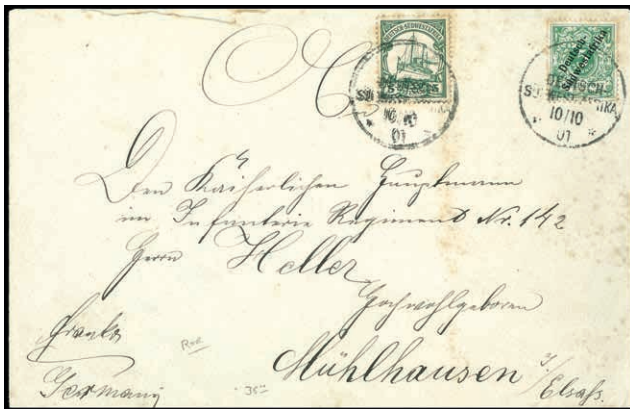 DEUTSCH-SÜDWESTAFRIKA
5 5
Deutsch-
Südwestafrika
DEUTSCH-
SÜDWESTAFRIKA
10/10
01
DEUTSCH-
SÜDWESTAFRIKA
10/10
01
Den Kaiserlichen Hauptmann
im Infanterie Regiment Nr. 142
Herrn Heller
Hochwohlgeboren
Mühlhausen i/Elsaß.
Franko
Germany